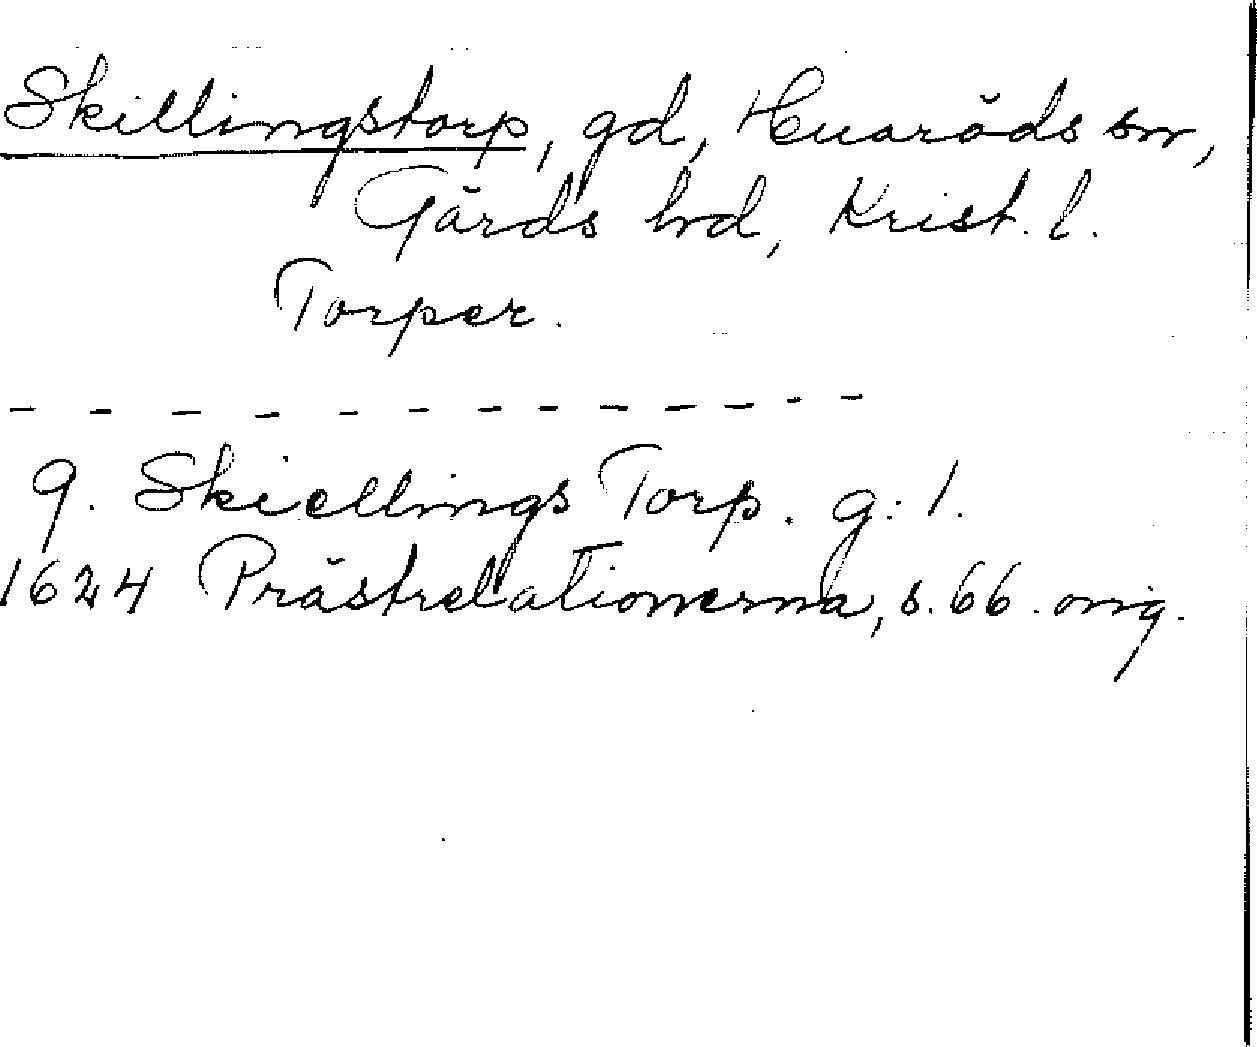 Skillingstorp, gd, Huaröds sn,
Gärds hd, Krist. l.
Torper.
- - - - - - - - - - - - -
9. Skiellings Torp. g: 1.
1624 Prästrelationerna, s. 66. orig.